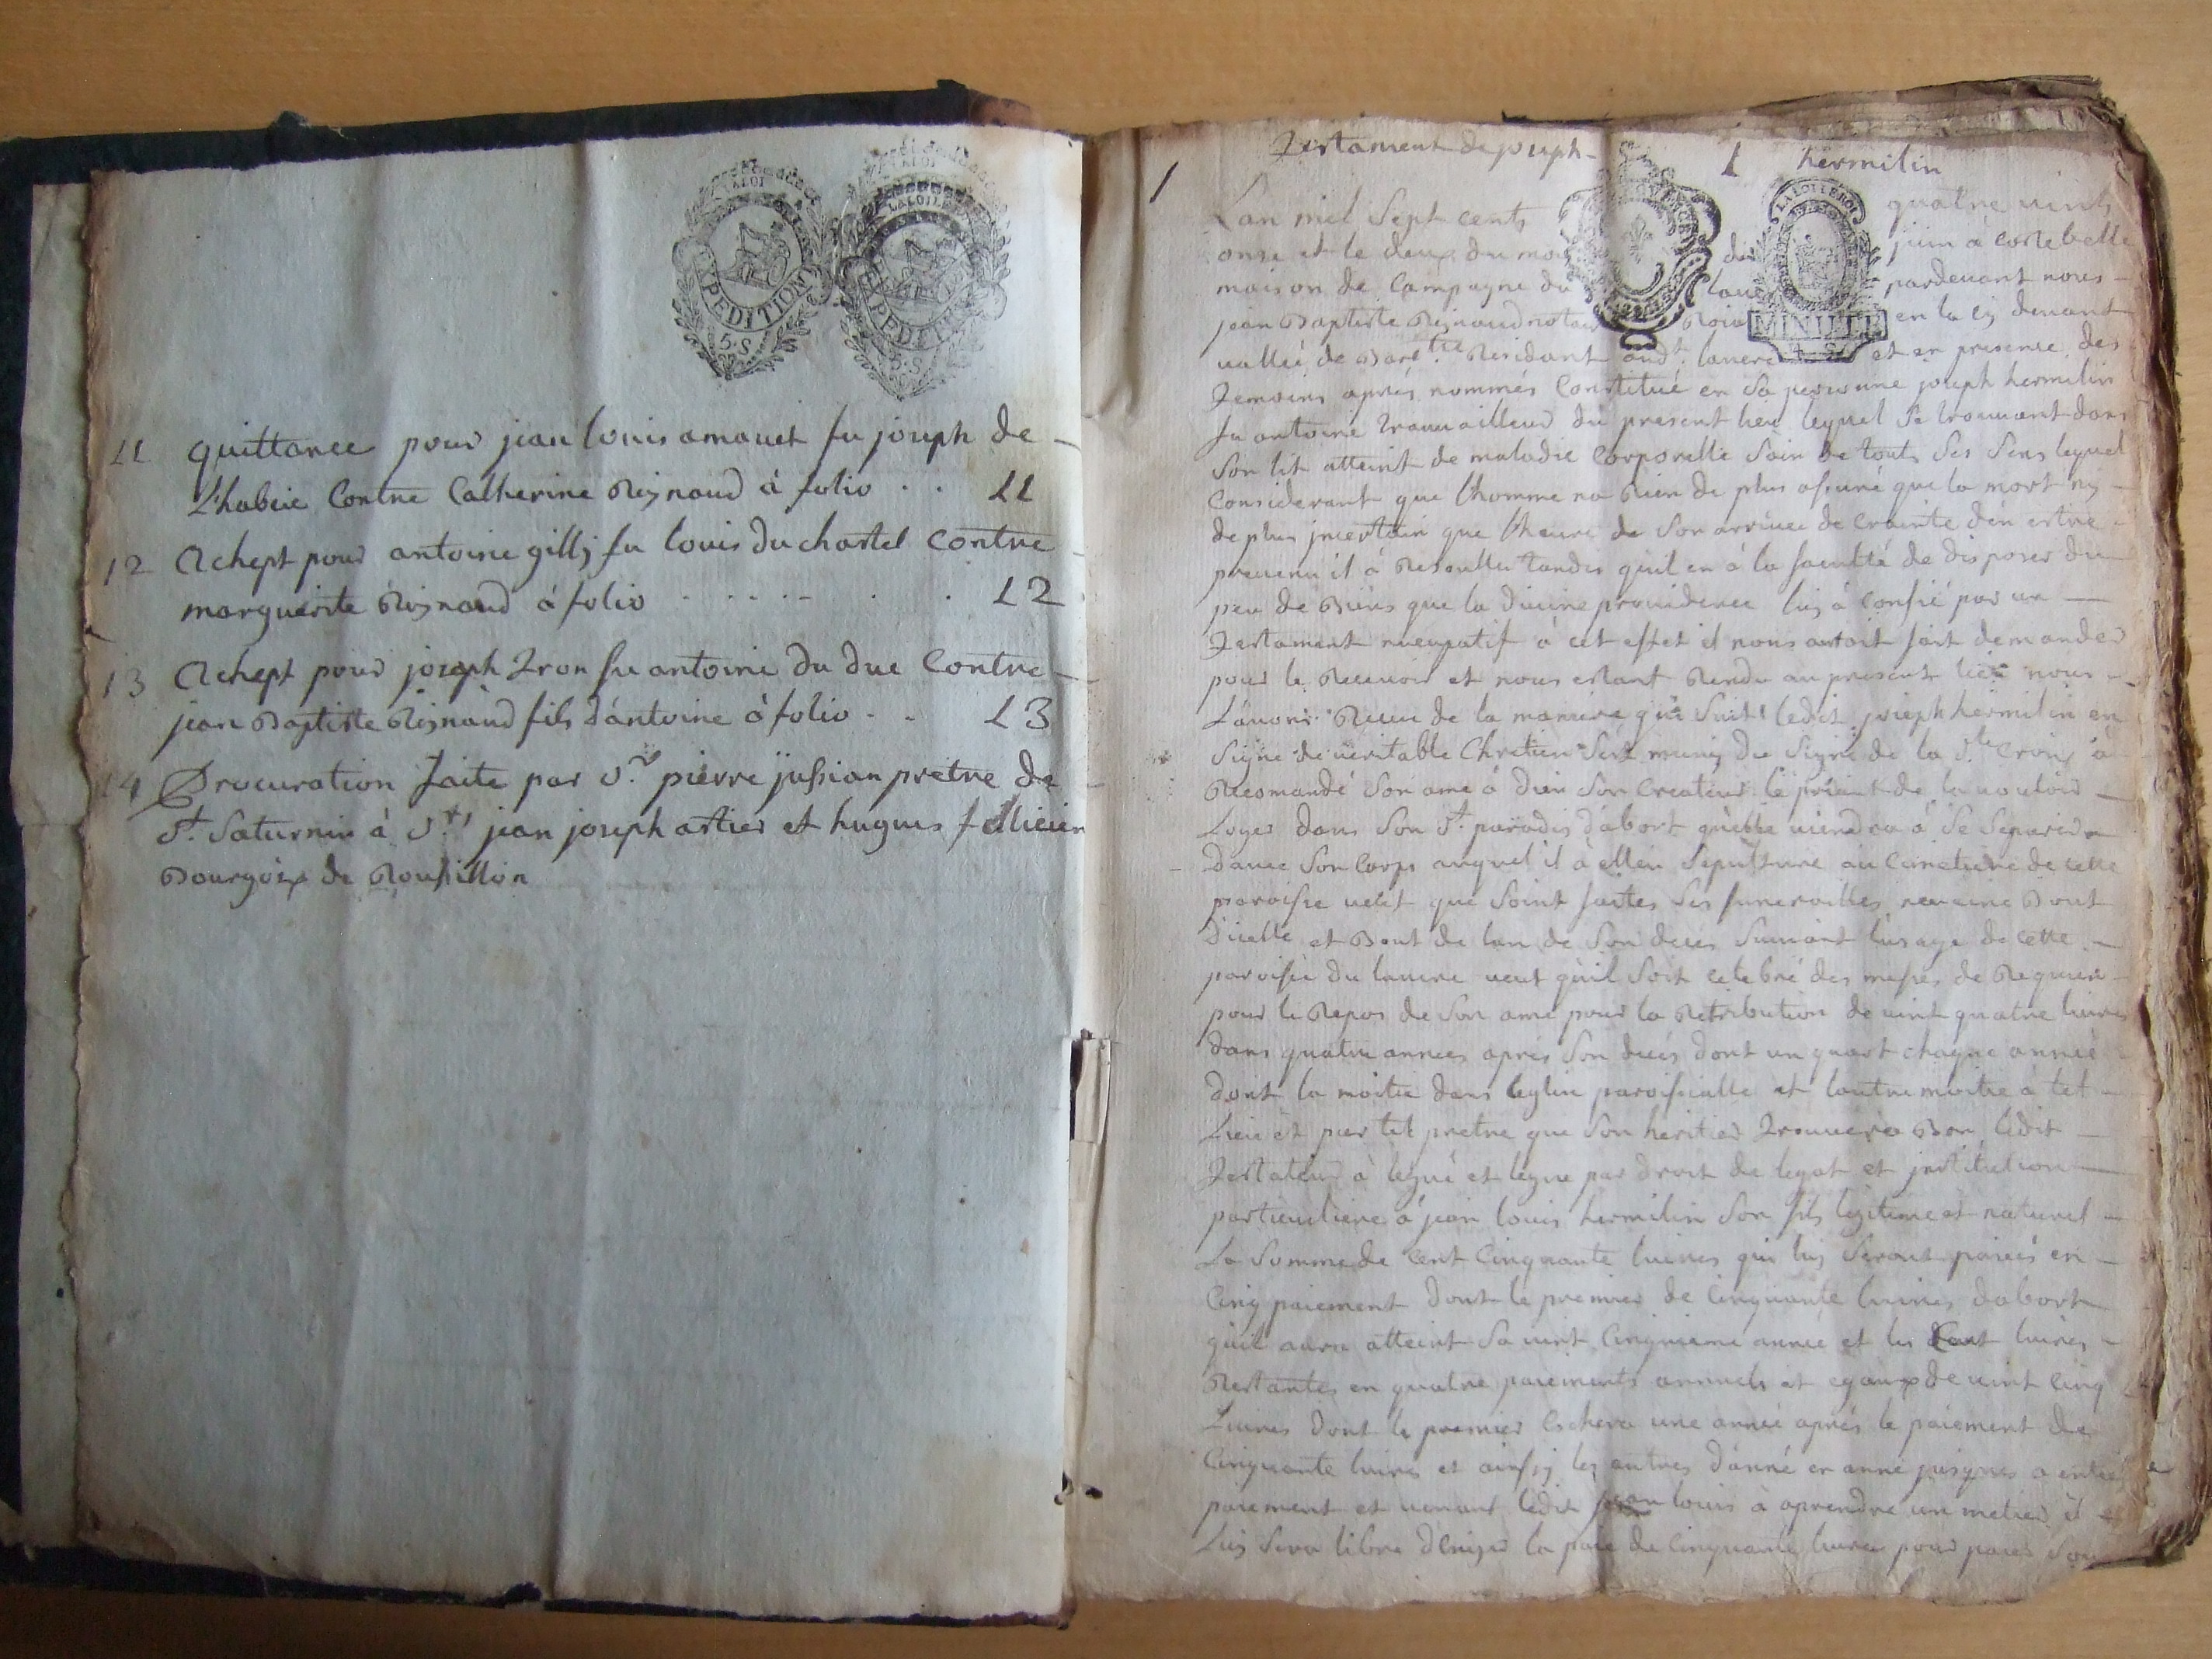 LA LOI
LA LOI LE
EXPEDITION
EXPEDIT
5·S
5·S
11 quittance pour jean louis amauet fu joseph de
l'habeie Contre Catherine Reynaud à folio . . 11
12 Achept pour antoine gilly fu louis du chastel Contre
marguerite Reynaud à folio . . . . . . 12
13 Achept pour joseph Tron fu antoine du duc Contre
jean Baptiste Reynaud fils d'antoine à folio . . 13
14 Procuration faite par Sr. pierre jussian pretre de
St. Saturnin à Srs jean joseph artier et hugues fellicien
Bourgoix de Roussillon
1 Testament de joseph 1 hermilin
LA LOI LE ROI
MINUTE
Lan miel Sept cents quatre vints
onse et le deux du mois de juin à costebelle
maison de Campagne du lauere pardeuant nous
jean Baptiste Reynaud notaire Roial en la cy deuant
uallée de Residant aud. lauere et en presence des
Temoins aprés nommés Constitué en sa personne joseph hermilin
fu antoine trauailleur du present lieu lequel se trouuant dans
son lit atteint de maladie Corporelle Sain de touts ses sens lequel
Considerant que l'homme na Rien de plus assuré que la mort ny
de plus jncertain que l'heure de son arriuée de Crainte d'en estre
preuenu il à Resoulu tandis quil en à la faculté de disposer du
peu de Biens que la diuine prouidence luy à Confié par un
Testament nucupatif à cet effet il nous auroit fait demander
pour le Receuoir et nous estant Rendu au present lieu nous
L'auons Receu de la maniere qui suit ledit joseph hermilin en
Signe de ueritable Chretien s'est muny du Signe de la Ste Croix à
Recomandé son ame à dieu son Createur le priant de la uouloir
Loger dans son St. paradis d'abort qu'elle uiendra à se separer
d'auec son Corps auquel il à elleu sepulture au Cimetiere de cette
paroisse ueut que soint faites ses funerailles neuuaine Bout
d'icelle et Bout de lan de son deces suiuant l'usage de cette
paroisse du lauere ueut qu'il soit celebré des messes de Requien
pour le Repos de son ame pour la Retribution de uint quatre liures
dans quatre annees aprés son decés dont un quart chaque année
dont la moitie dans leglise paroissialle et lautre moitie à tel
Lieu et par tel pretre que son heritier trouuera Bon ledit
Testateur à legué et legue par droit de legat et jnstitution
particuliere à jean louis hermilin son fils legitime et naturel
La Somme de Cent Cinquante liures qui luy seront paiées en
Cinq paiement dont le premier de Cinquante liures dabort
quil aura atteint sa uint Cinquieme année et les Cent liures
Restantes en quatre paiements annuels et egaux de uint Cinq
Liures dont le premier Echera une année aprés le paiement des
Cinquante liures et ainssy les autres d'anné en anné jusques a entier
paiement et uenant ledit jean louis à aprendre un metier il
Luy sera libre d'Exiger la paie de Cinquante liures pour paier son